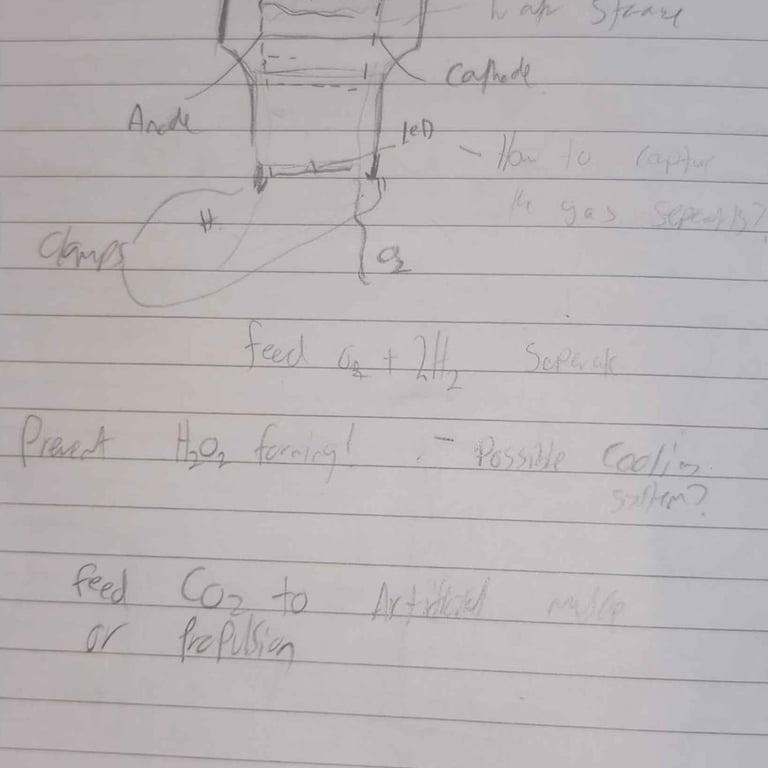 Cathode
Anode
LED
- How to capture
the gas seperatly?
H
Clamps
O2
feed O2 + 2H2 Seperate
Prevent H2O2 forming! - Possible Cooling
system?
feed CO2 to Artificial
or Propulsion